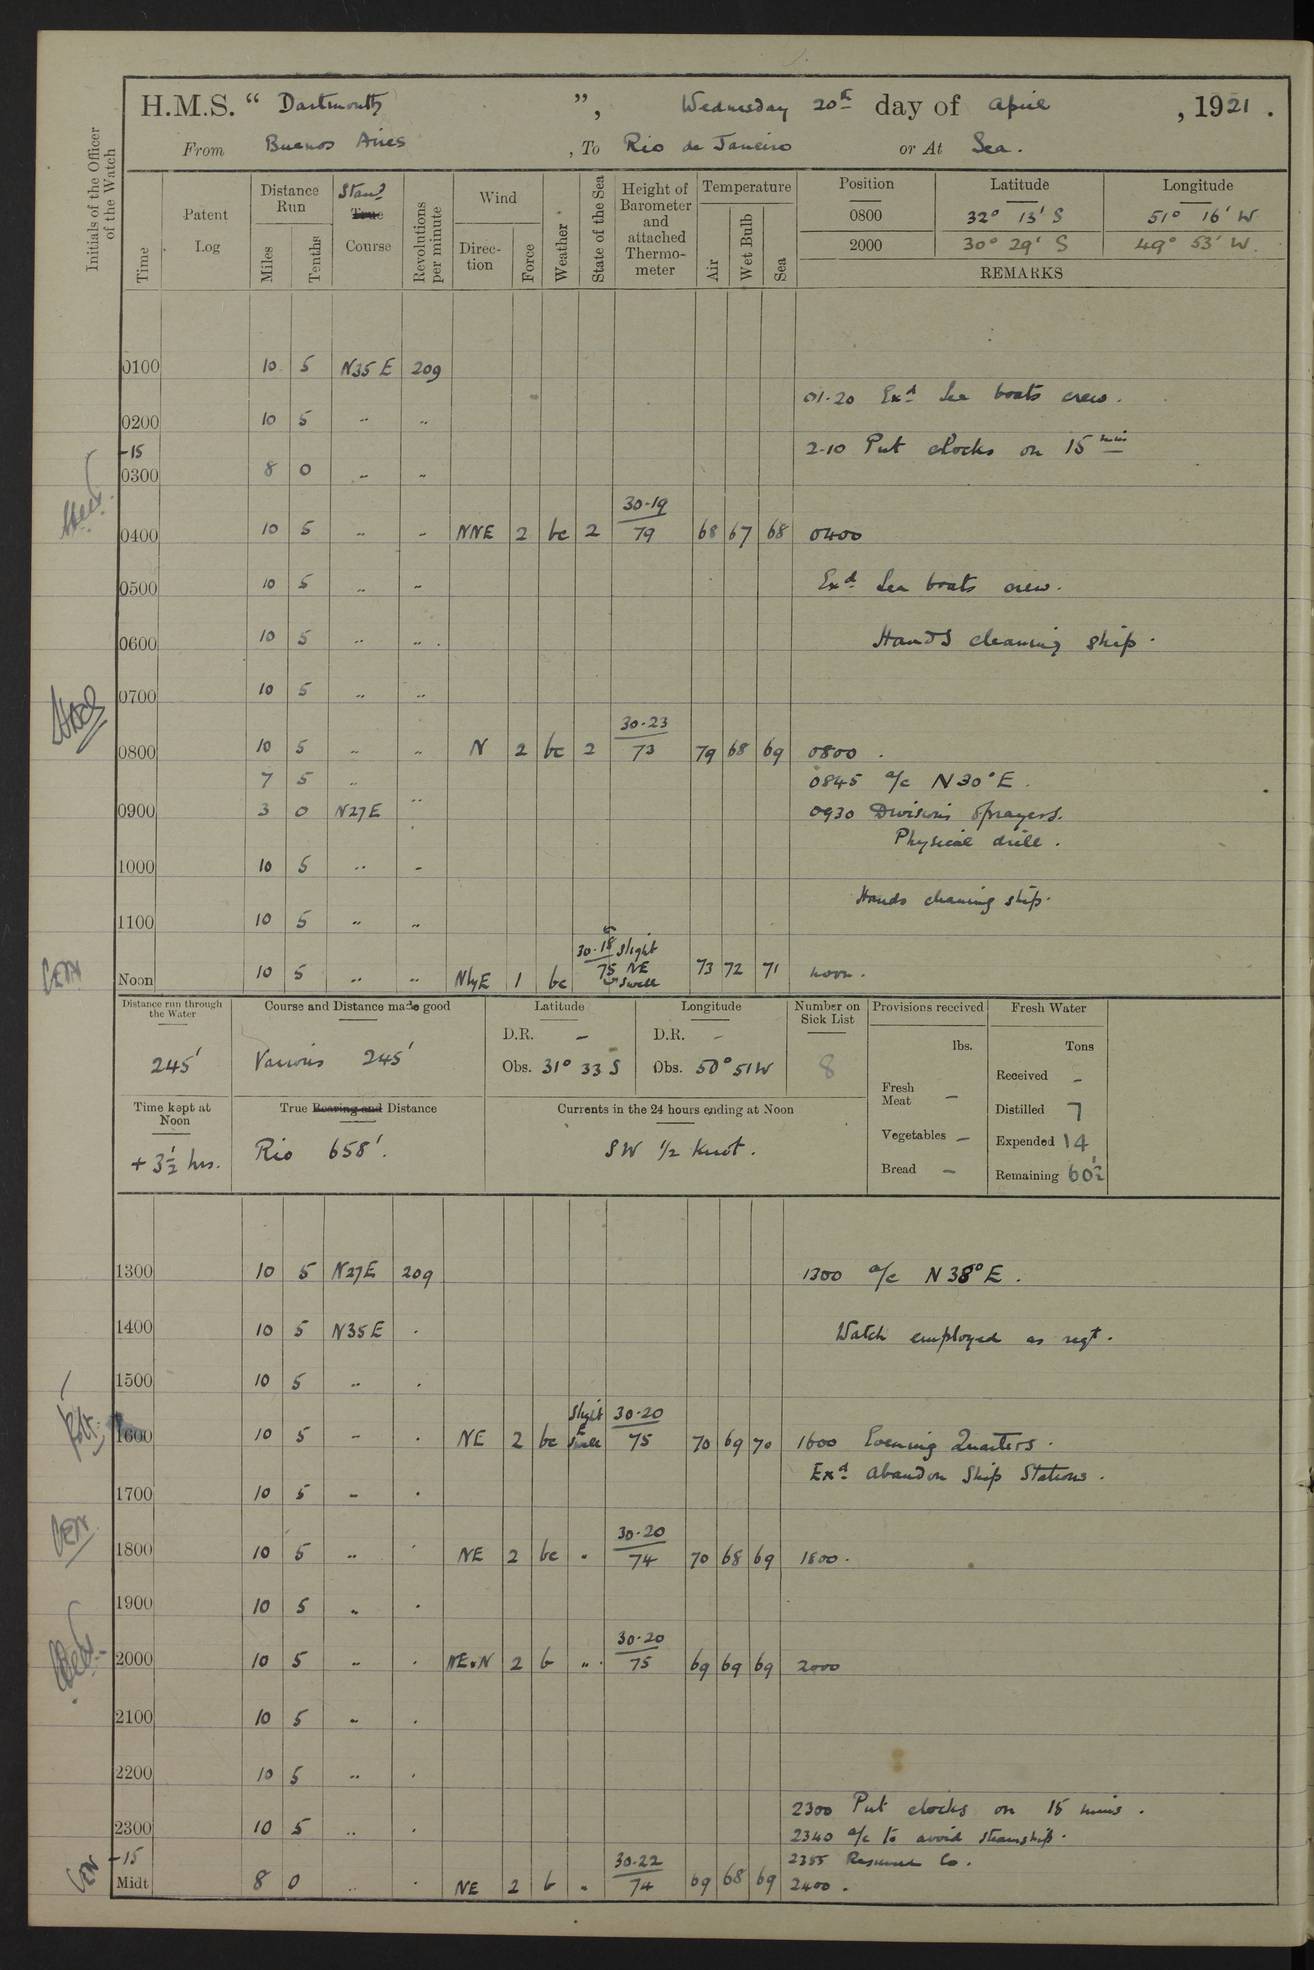 H.M.S. “ Dartmouth ”, Wednesday 20th day of April , 1921 .
From Buenos Aires , To Rio de Janeiro or At Sea .
Initials of the Officer of the Watch
Time Patent Log Distance Run Miles Tenths Stand True Course Revolutions per minute Wind Direction Force Weather State of the Sea Height of Barometer and attached Thermometer Temperature Air Wet Bulb Sea
Position Latitude Longitude
0800 32° 13' S 51° 16' W
2000 30° 29' S 49° 53' W.
REMARKS
0100 10 5 N35 E 209
01·20 Exd Sea boats crew .
0200 10 5 " "
2·10 Put clocks on 15 mins
-15
0300 8 0 " "
30·19
0400 10 5 " " NNE 2 bc 2 79 68 67 68 0400
0500 10 5 " " Exd Sea boats crew .
0600 10 5 " " Hands cleaning ship .
0700 10 5 " "
30·23
0800 10 5 " " N 2 bc 2 73 79 68 69 0800 .
7 5 " 0845 a/c N 30° E .
0900 3 0 N27E " 0930 Divisions & prayers.
Physical drill .
1000 10 5 " "
Hands cleaning ship .
1100 10 5 " "
30·18 Slight
Noon 10 5 " " NbyE 1 bc 75 NE Swell 73 72 71 noon .
Distance run through the Water
245'
Course and Distance made good
Various 245'
Latitude
D.R. -
Obs. 31° 33 S
Longitude
D.R. -
Obs. 50° 51 W
Number on Sick List
8
Provisions received
lbs.
Fresh Meat -
Vegetables -
Bread -
Fresh Water
Tons
Received -
Distilled 7
Expended 14
Remaining 60½
Time kept at Noon
+ 3½ hrs.
True Bearing and Distance
Rio 658'.
Currents in the 24 hours ending at Noon
SW ½ knot .
1300 10 5 N27E 209 1300 a/c N 38° E .
1400 10 5 N35E " Watch employed as reqt .
1500 10 5 " "
Slight 30·20
1600 10 5 " " NE 2 bc E Swell 75 70 69 70 1600 Evening Quarters .
Exd Abandon Ship Stations .
1700 10 5 " "
30·20
1800 10 5 " " NE 2 bc " 74 70 68 69 1800 .
1900 10 5 " "
30·20
2000 10 5 " " NExN 2 b " 75 69 69 69 2000
2100 10 5 " "
2200 10 5 " "
2300 Put clocks on 15 mins .
2300 10 5 " " 2340 a/c to avoid steamship .
-15 30·22 2355 Resumed Co .
Midt 8 0 " " NE 2 b " 74 69 68 69 2400 .